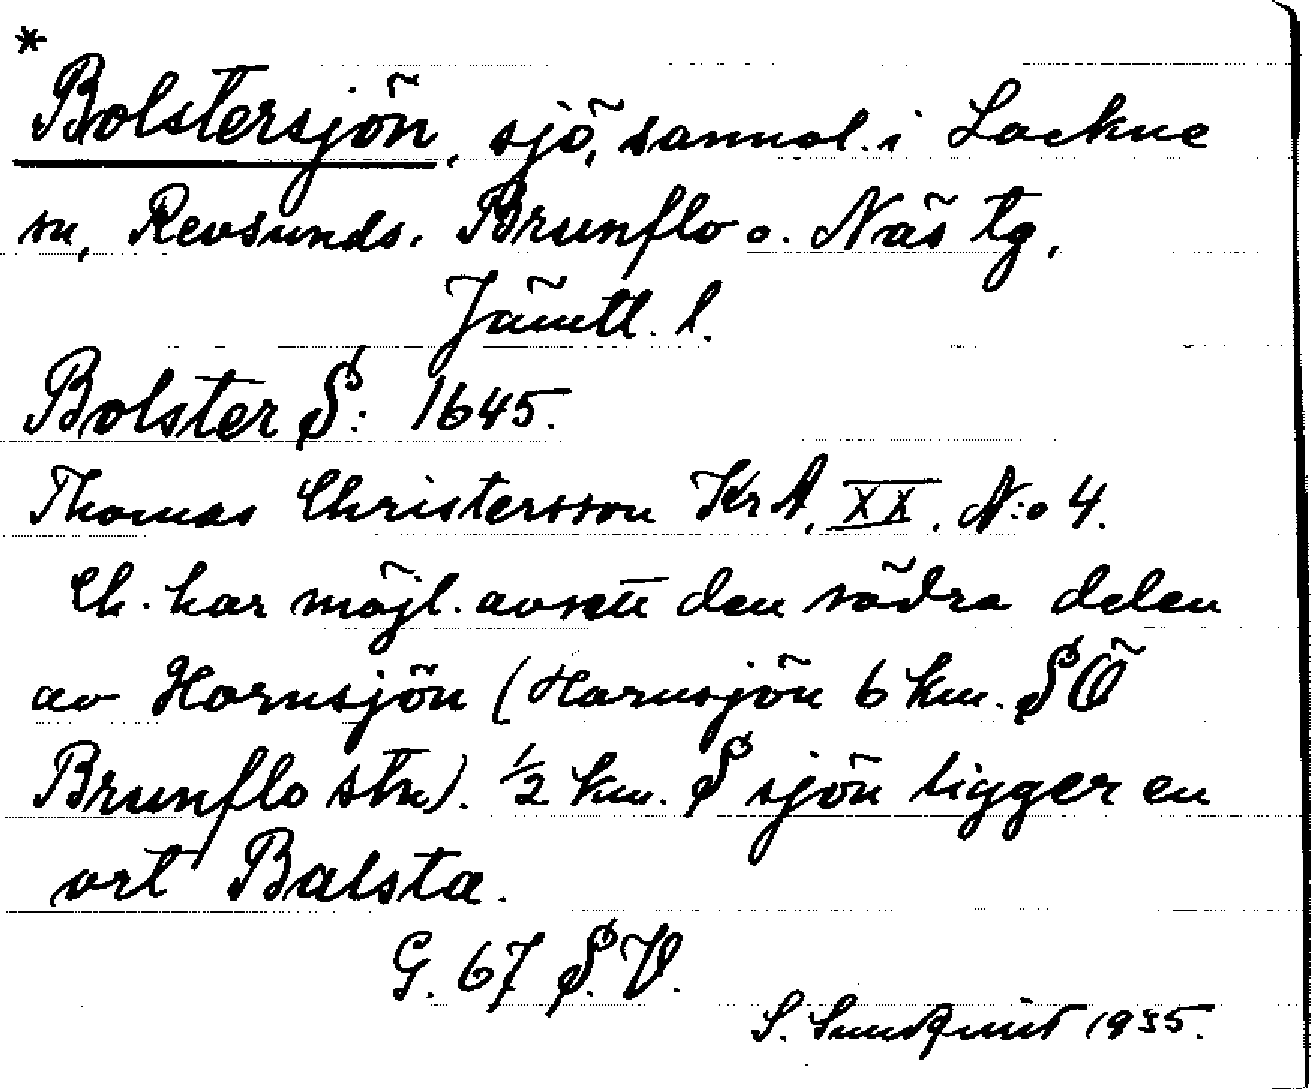 *
Bolstersjön, sjö, sannol. i Lockne
sn, Revsunds, Brunflo o. Näs tg,
Jämtl. l.
Bolster S: 1645.
Thomas Christersson KrA, XX, N:o 4.
Ch. har möjl. avsett den södra delen
av Hornsjön (Hornsjön 6 km. SÖ
Brunflo stn). 1/2 km. S sjön ligger en
ort Balsta.
G. 67 S.V.
S. Sundqvist 1935.